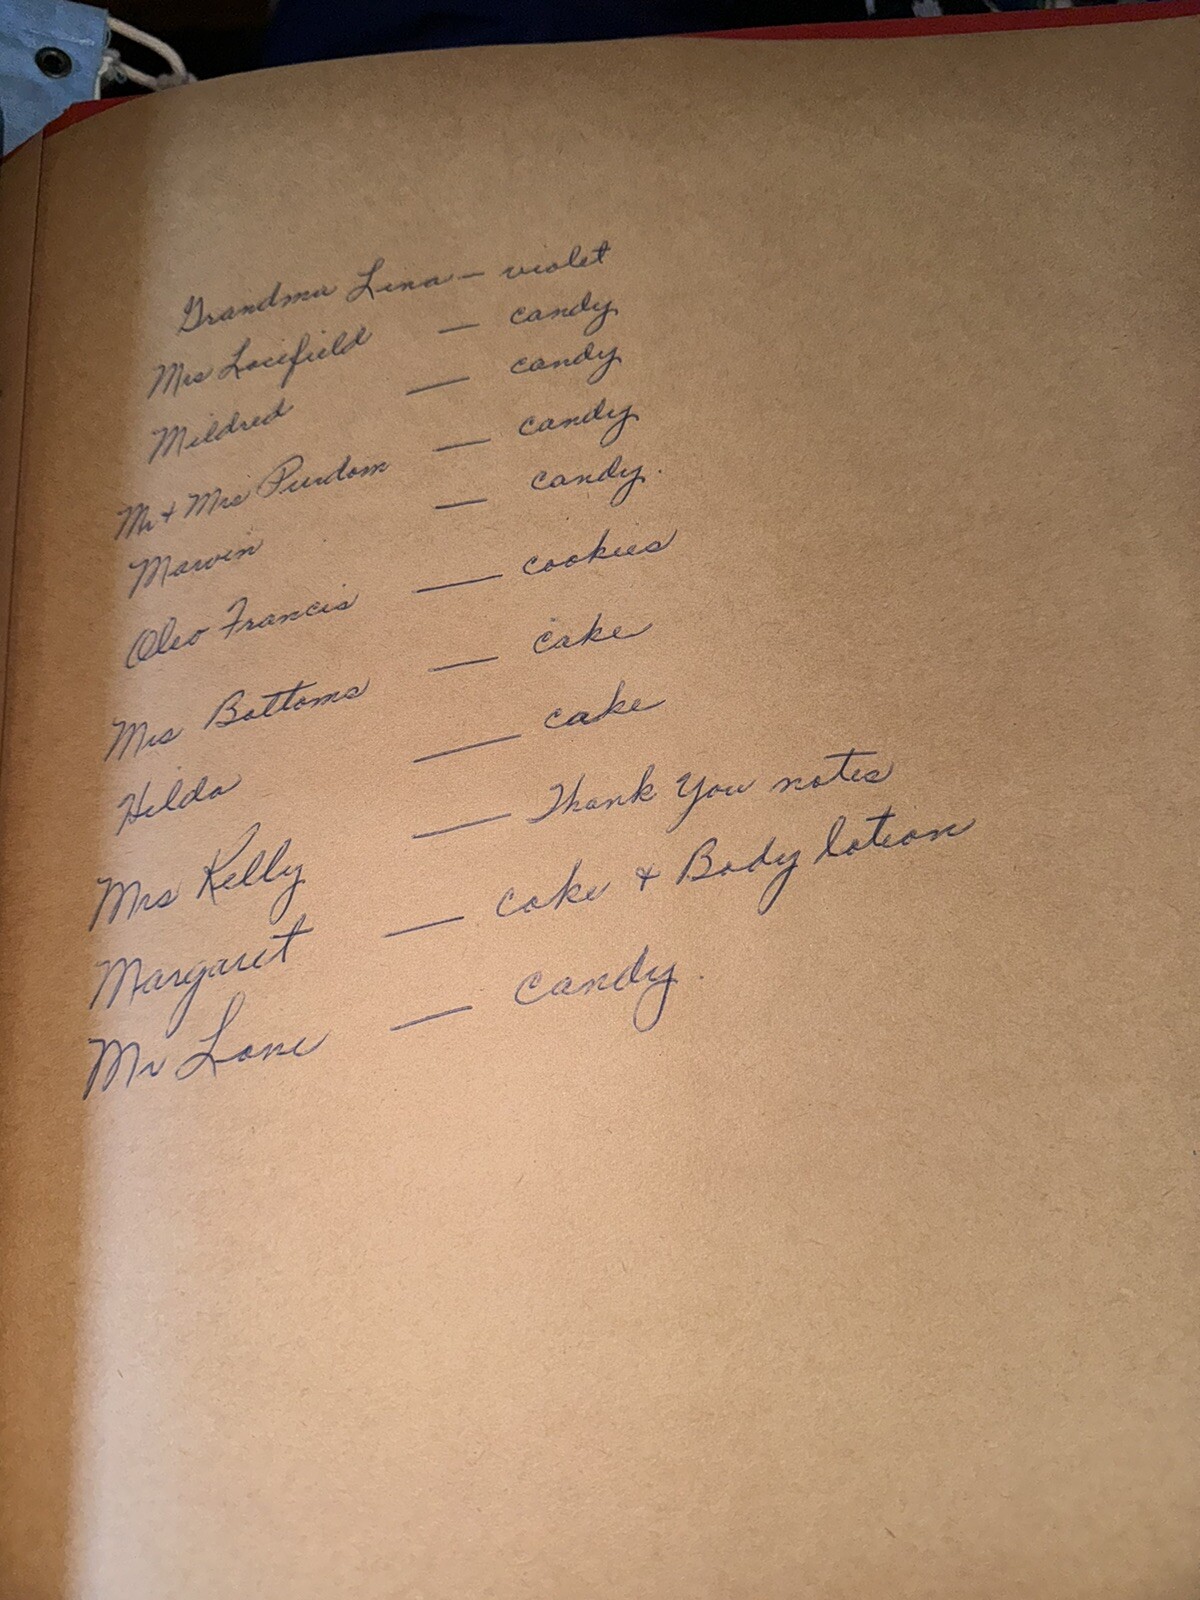 Grandma Lena – violet
Mrs Locifield — candy
Mildred — candy
Mr + Mrs Purdom — candy
Marvin — candy.
Oleo Francis — cookies
Mrs Bottoms — cake
Hilda — cake
Mrs Kelly — Thank You notes
Margaret — cake + Body lotion
Mr Lane — candy.